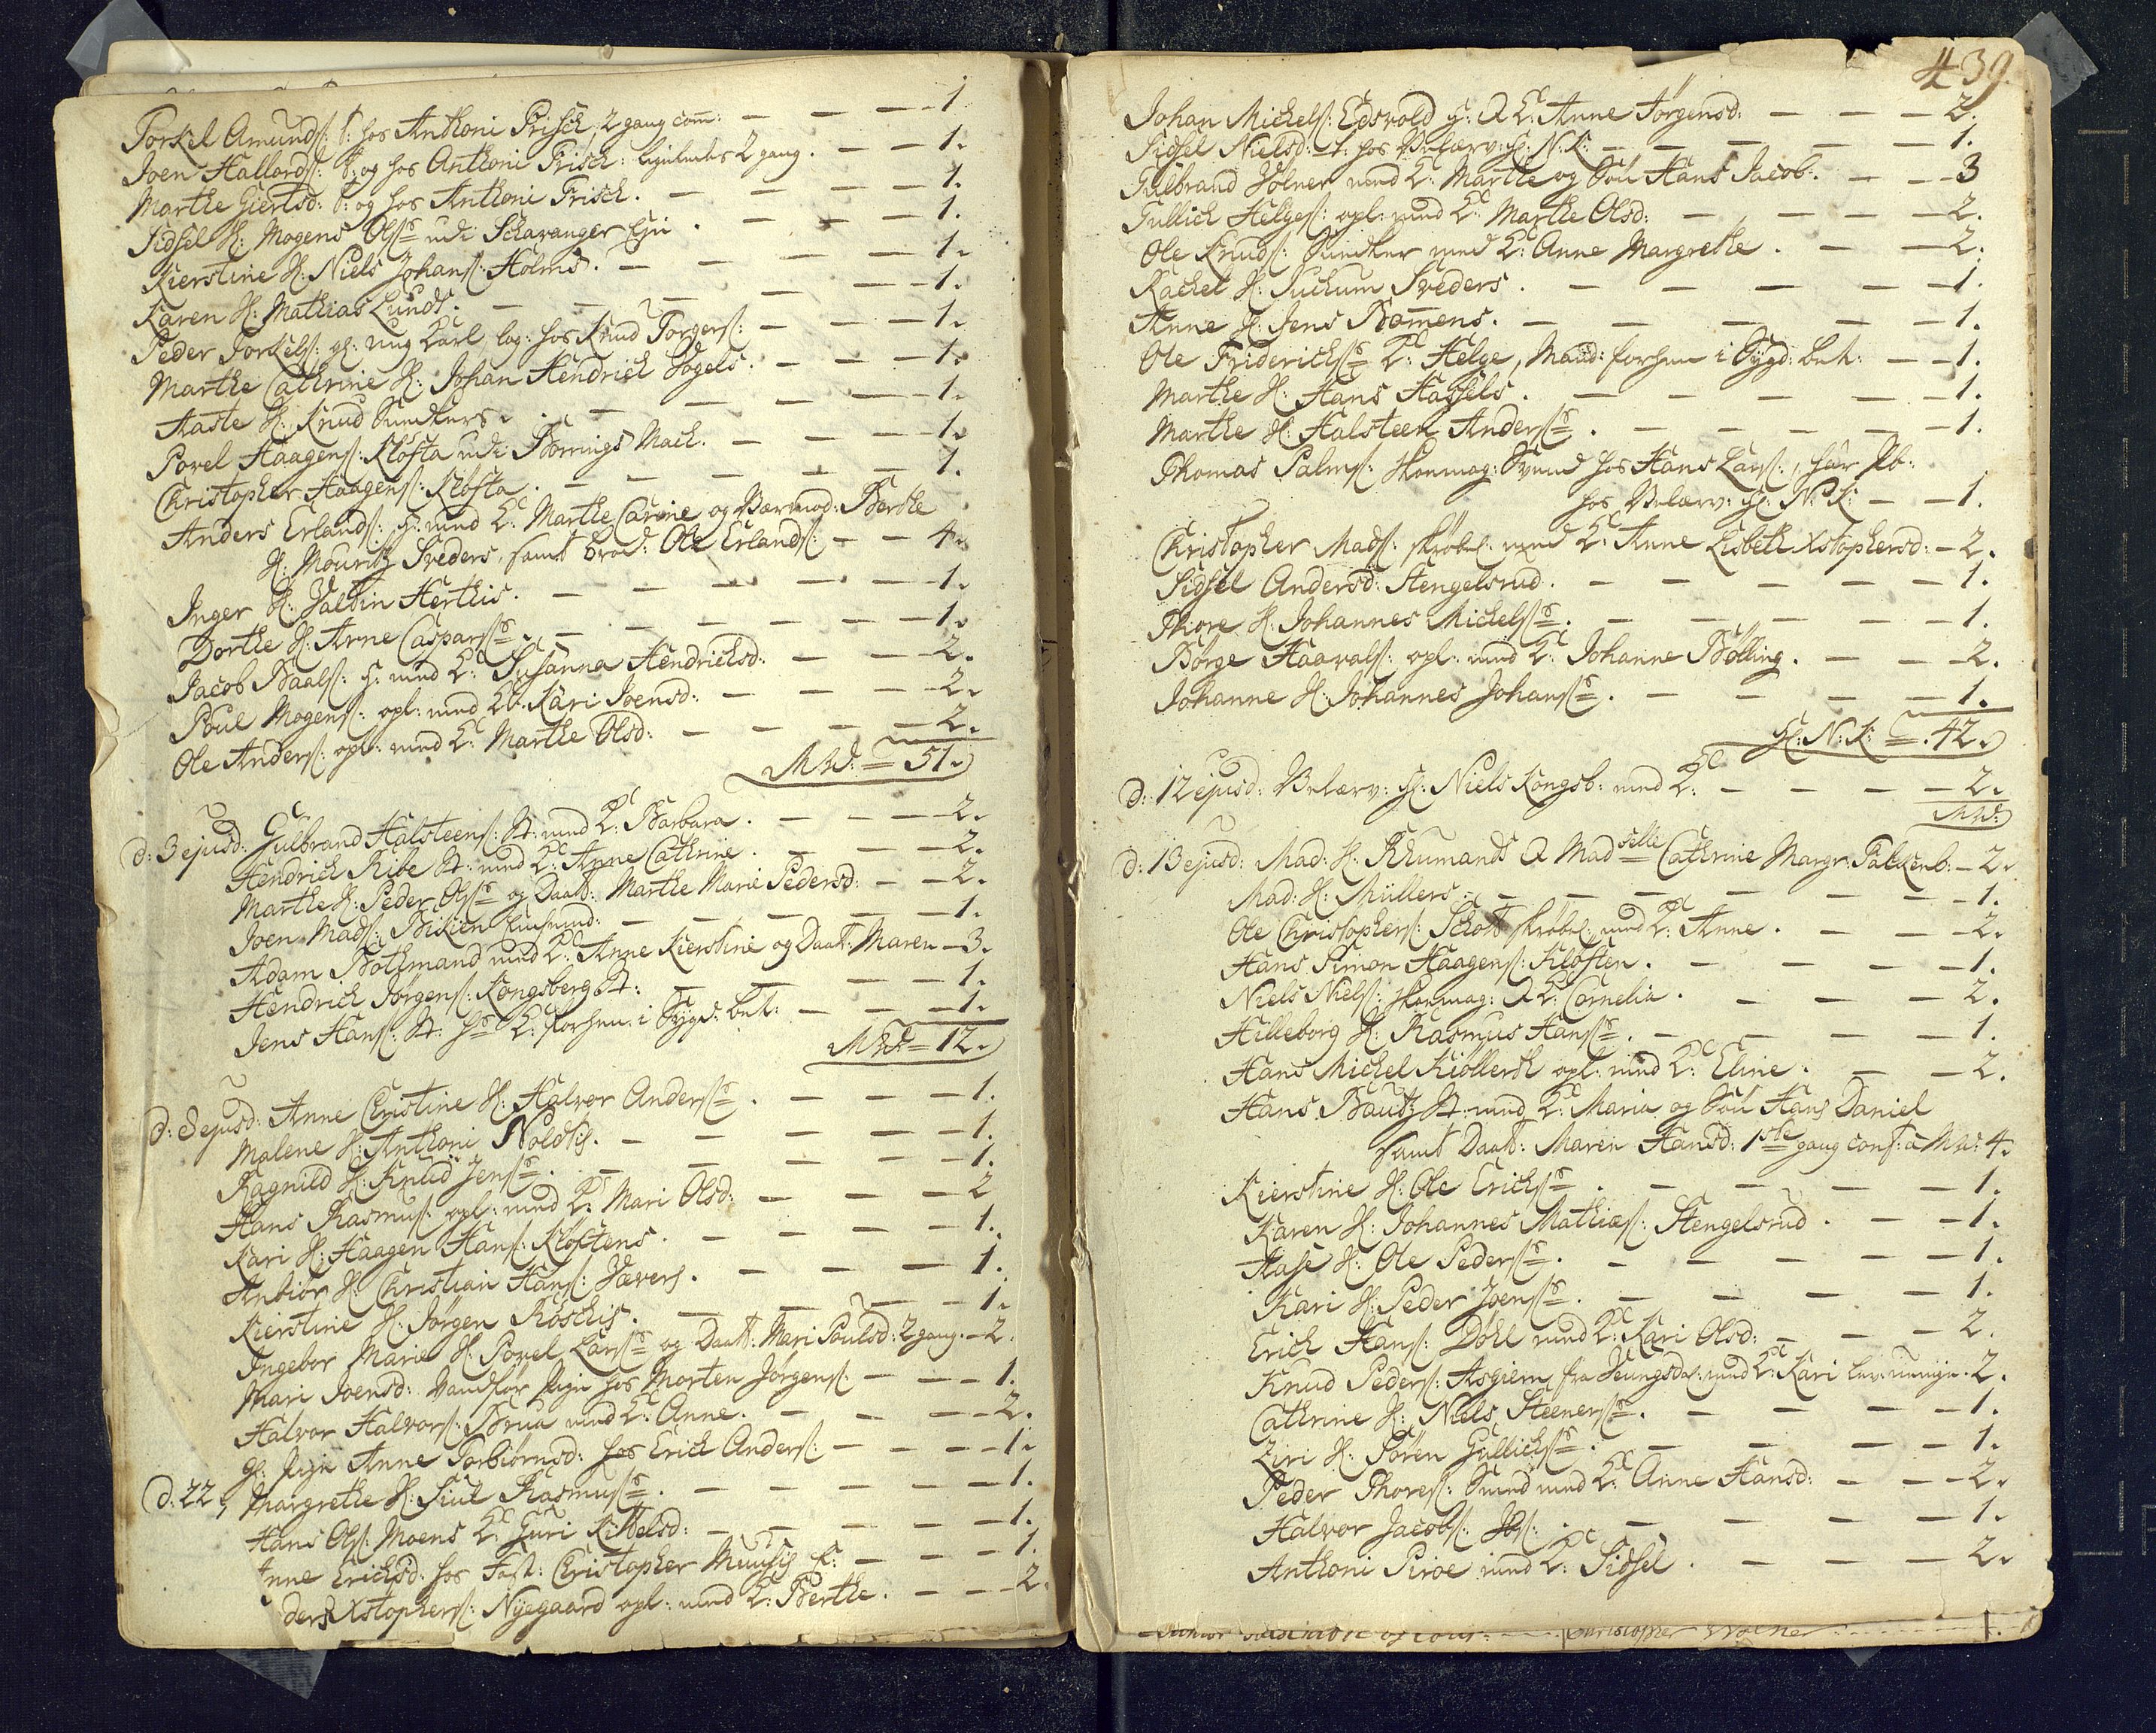 Torkel Amunds: t: hos Anthoni Frisch, 2 gang com: — — — 1.
Joen Hallords: t: og hos Anthoni Frisch: ligeledes 2 gang. — — 1.
Marthe Giertsd: t: og hos Anthoni Frisch. — — — 1.
Sidsel H: Mogens Ols: udi Schavanger — — — 1.
Kierstine H: Niels Johans: Holms. — — — 1.
Karen H: Mathias Lunds. — — — 1.
Peder Torkels: gl: ung Karl log: hos Knud Torgers: — — 1.
Marthe Cathrine H: Johan Hendrich Vogels. — — 1.
Aaste H: Knud — — — 1.
Povel Haagens: Klöfta udi Bornings Mach. — — — 1.
Christopher Haagens: Klöfta. — — — 1.
Anders Erlands: g: med K: Marthe Carine og Værmod: Berthe
H: Mouritz Sveders, samt brod: Ole Erlands: — — 4.
Inger H: Valtin Herthis. — — — 1.
Dorthe H: Arne Caspars: — — — 1.
Jacob Baals: g: med K: Susanna Hendrichsd: — — 2.
Poul Mogens: opl: med K: Kari Joensd: — — 2.
Ole Anders: opl: med K: Marthe Olsd: — — 2.
51.
d: 3 ejusd: Gulbrand Halsteens: St: med K: Barbara. — — 2.
Hendrich Ribe St: med K: Anne Cathrine. — — 2.
Marthe H: Peder Ols: og Daat: Marthe Marie Pedersd: — — 2.
Joen Mads: Bikien — — 1.
Adam Bothmand med K: Anne Kierstine og Daat: Maren — 3.
Hendrich Jørgens: Kongsberg St: — — 1.
Jens Hans: St: K: forhen i Sygd: bet: — — 1.
12.
d: 8 ejusd: Anne Christine H: Halvor Anders: — — 1.
Malene H: Anthoni Noldtis. — — — 1.
Ragnild H: Knud Jens: — — — 1.
Hans Rasmus: opl: med K: Mari Olsd: — — 2
Kari H: Haagen Hans: Klöftens. — — 1.
Anbior H: Christian Hans: Vævers. — — 1.
Kierstine H: Jørgen Röschis. — — 1.
Ingebor Marie H: Povel Lars: og Daat: Mari Poulsd: 2 gang. — 2.
Mari Joensd: Vandfør Pige hos Morten Jørgens: — — 1.
Halvor Halvors: Brua med K: Anne. — — 2.
gl: Pige Anne Torbiørnsd: hos Erich Anders: — — 1.
d: 22, Margrethe H: Siul Rasmus: — — 1.
Hans Ols: Moens K: Guri Kittelsd: — — 1.
Anne Erichsd: hos Fast: Christopher — — 1.
ders Xstophers: Nyegaard opl: med K: Berthe. — — 2.
439.
Johan Michels: Edsvold g: & K: Anne Jørgensd: — — 2.
Sidsel Nielsd: t: hos Velærv: Hr: N: K: — — 1.
Gulbrand Volner med K: Marthe og Søn Hans Jacob. — — 3
Gullich Helges: opl: med K: Marthe Olsd: — — 2.
Ole Knuds: med K: Anne Margrethe. — — 2.
Rachel H: Jochum Sveders. — — 1.
Anne H: Jens Bømens. — — 1.
Ole Friderichs: K: Helge, Mand: forhen i Sygd: bet: — — 1.
Marthe H: Hans Hassels. — — 1.
Marthe H: Halsteen Anders: — — 1.
Thomas Palms: Skomag: Svend hos Hans Lars:,
hos Velærv: Hr: N: K: — — 1.
Christopher Mads: skrøbel: med K: Anne Lisbeth Xstophersd: — 2.
Sidsel Andersd: Stengelsrud. — — 1.
Thore H: Johannes Michels: — — 1.
Børge Haavals: opl: med K: Johanne Bölling. — — 2.
Johanne H: Johannes Johans: — — 1.
Hr: N: K: = 42.
d: 12 ejusd: Velærv: Hr: Niels Kongsb: med K: — — 2.
d: 13 ejusd: Mad: H: Rhumands & Madselle Cathrine Margr: Falkenb: — 2.
Mad: H: Müllers. — — 1.
Ole Christophers: Schott skrøbel: med K: Anne. — — 2.
Hans Simon Haagens: Klöften. — — 1.
Niels Niels: Skomag: & K: Cornelia. — — 2.
Hilleborg H: Rasmus Hans: — — 1.
Hans Michel Kiöllersh opl: med K: Eline. — — 2.
Hans Bautz St: med K: Maria og Søn Hans Daniel
samt Daat: Maren Hansd: 1ste gang conf: a 4.
Kierstine H: Ole Erichs: — — 1.
Karen H: Johannes Mathiæs: Stengelsrud. — — 1.
Aase H: Ole Peders: — — 1.
Kari H: Peder Joens: — — 1.
Erich Hans: Döhl med K: Kari Olsd: — — 2.
Knud Peders: Asgiem fra med K: Kari 2.
Cathrine H: Niels Steeners: — — 1.
Ziri H: Søren Gullichs: — — 1.
Peder Thores: Smed med K: Anne Hansd: — — 2.
Halvor Jacobs: — — 1.
Anthoni Piroe med K: Sidsel. — — 2.
Christopher 1.